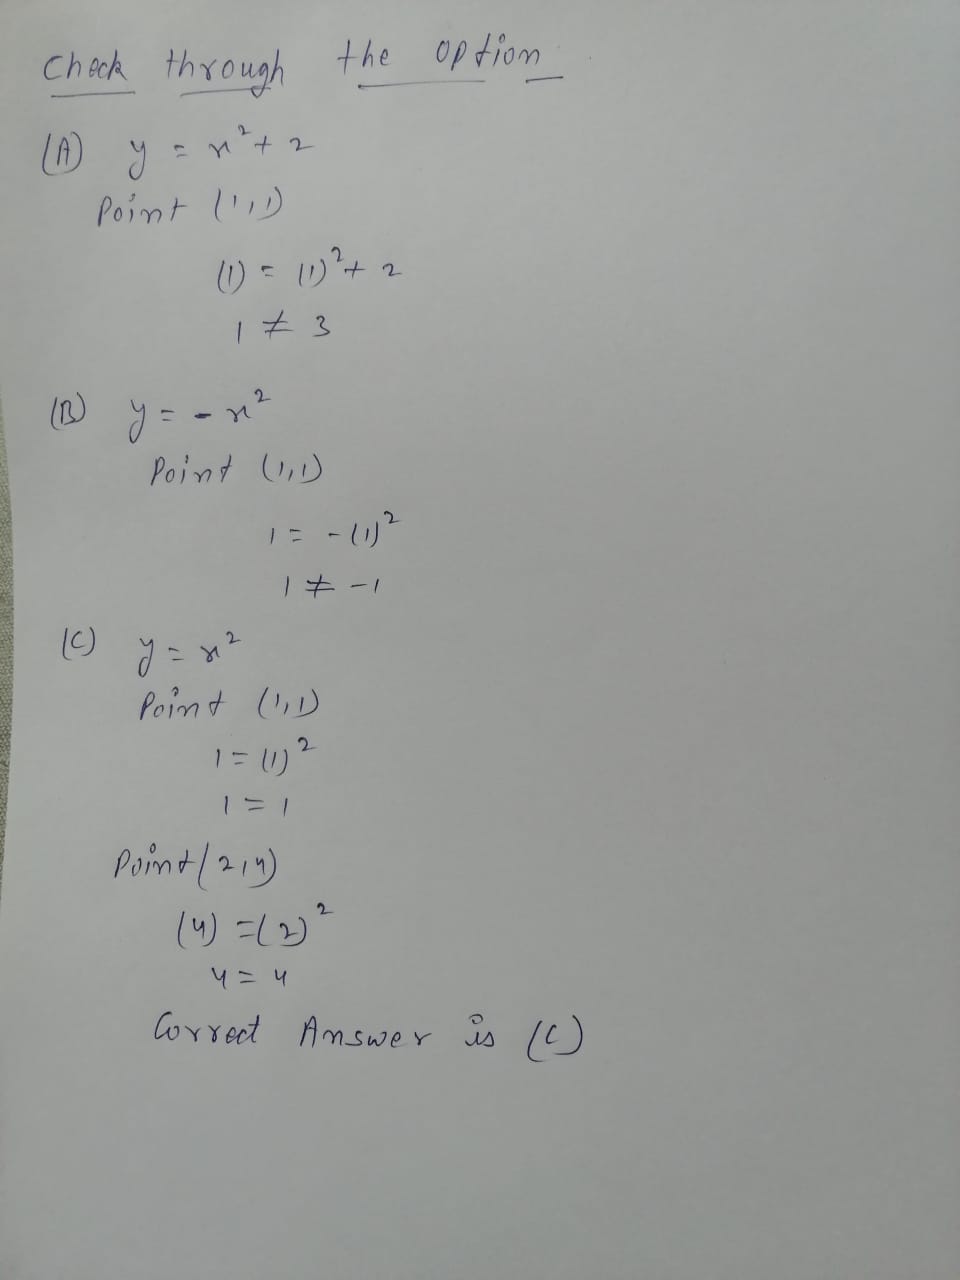 Check through the option
(A) y = x² + 2
Point (1,1)
(1) = (1)² + 2
1 ≠ 3
(B) y = - x²
Point (1,1)
1 = - (1)²
1 ≠ -1
(C) y = x²
Point (1,1)
1 = (1)²
1 = 1
Point (2,4)
(4) = (2)²
4 = 4
Correct Answer is (C)